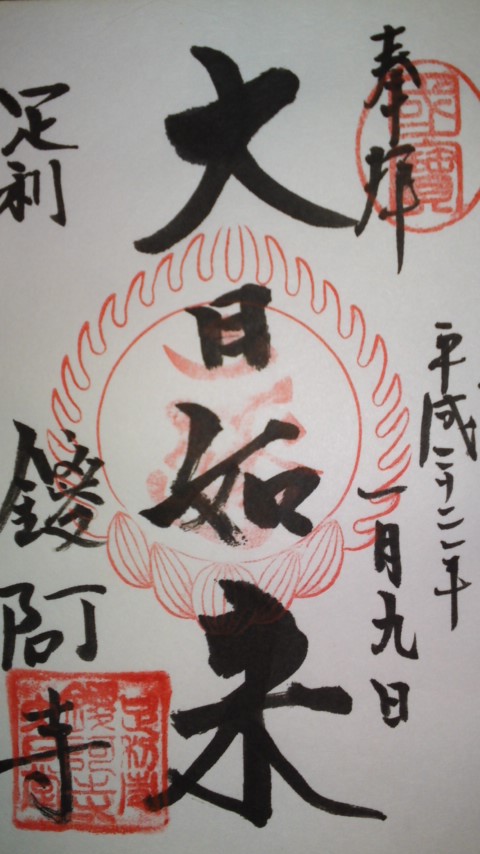 奉拝
國寶
平成二十二年
一月九日
大日如来
足利
鑁阿寺